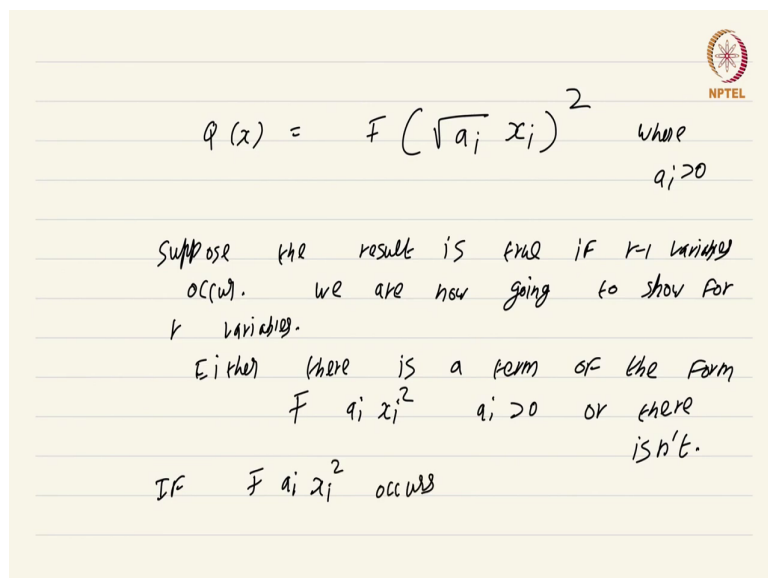 NPTEL
Q(x) = ∓ (√aᵢ xᵢ)² where
aᵢ>0
Suppose the result is true if r-1 variables
occur. we are now going to show for
r variables.
Either there is a term of the form
∓ aᵢ xᵢ² aᵢ >0 or there
isn't.
IF ∓ aᵢ xᵢ² occurs